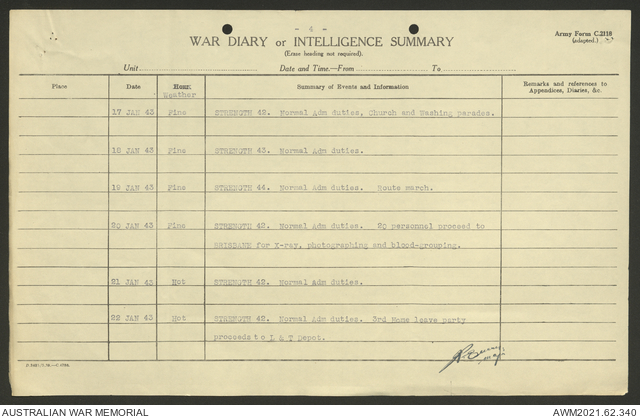 - 4 -
Army Form C.2118
(adapted.)
WAR DIARY or INTELLIGENCE SUMMARY
(Erase heading not required).
Unit Date and Time.—From To
Place Date HOUR Summary of Events and Information Remarks and references to
Appendices, Diaries, &c.
Weather
17 JAN 43 Fine STRENGTH 42. Normal Adm duties, Church and Washing parades.
18 JAN 43 Fine STRENGTH 43. Normal Adm duties.
19 JAN 43 Fine STRENGTH 44. Normal Adm duties. Route march.
20 JAN 43 Fine STRENGTH 42. Normal Adm duties. 20 personnel proceed to
BRISBANE for X-ray, photographing and blood-grouping.
21 JAN 43 Hot STRENGTH 42. Normal Adm duties.
22 JAN 43 Hot STRENGTH 42. Normal Adm duties. 3rd Home leave party
proceeds to L & T Depot.
AUSTRALIAN WAR MEMORIAL AWM2021.62.340